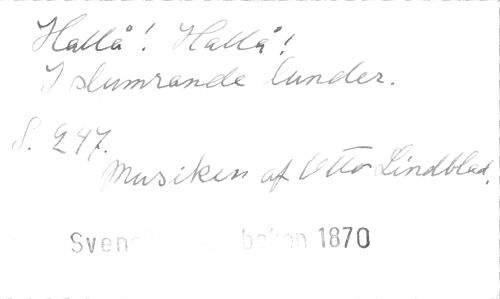 Hallå! Hallå!
I slumrande lunder.
S. 247.
Musiken af Otto Lindblad.
1870